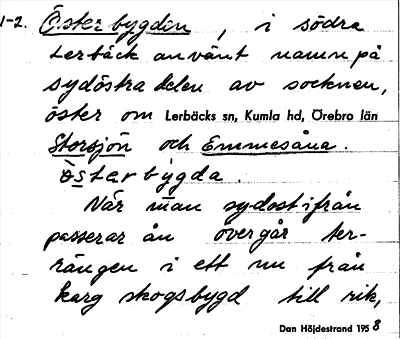 1-2. Österbygden, i södra
Lerbäck använt namn på
sydöstra delen av socknen,
öster om Lerbäcks sn, Kumla hd, Örebro län
Storsjön och Emmesåna.
östərby̌gda.
När man sydostifrån
passerar ån övergår ter-
rängen i ett nu från
karg skogsbygd till rik,
Dan Höjdestrand 1958